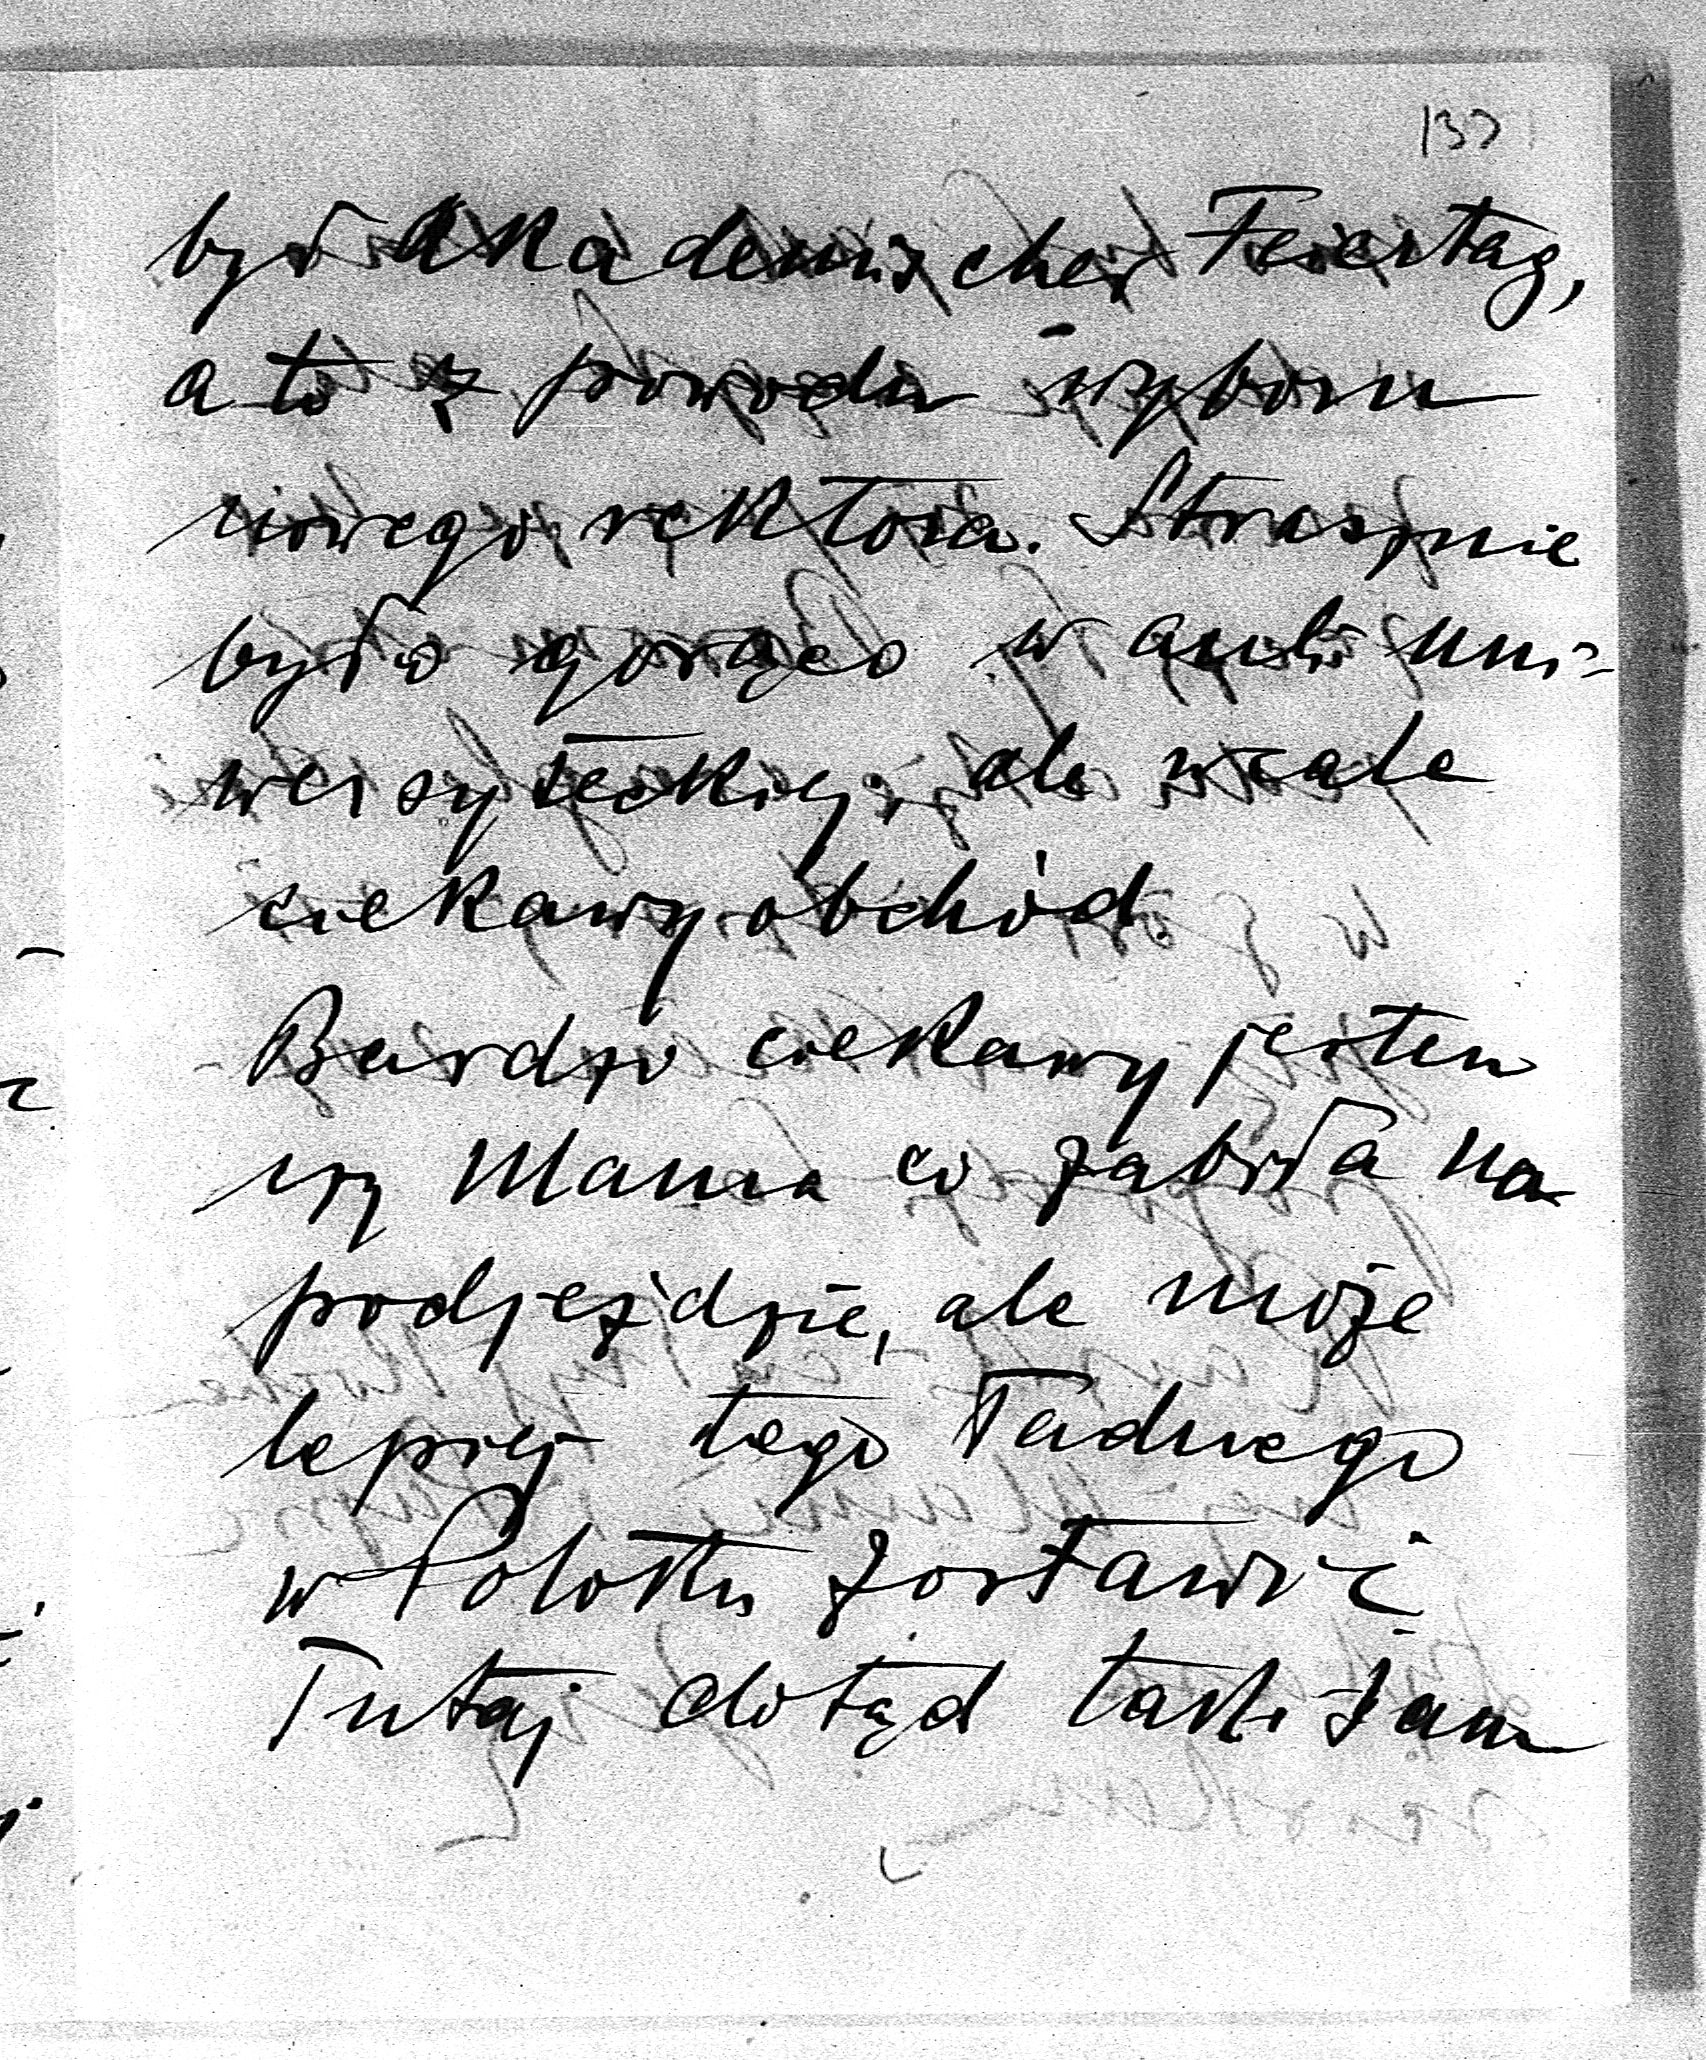 137
był Akademischer Feiertag,
a to z powodu wyboru
nowego rektora. Strasznie
było gorąco w auli uni-
wersyteckiej, ale wcale
ciekawy obchód.
Bardzo ciekawy jestem
czy Mama co zabiła na
podjeździe, ale może
lepiej tego ładnego
w Połotku zostawić
Tutaj dotąd taki sam